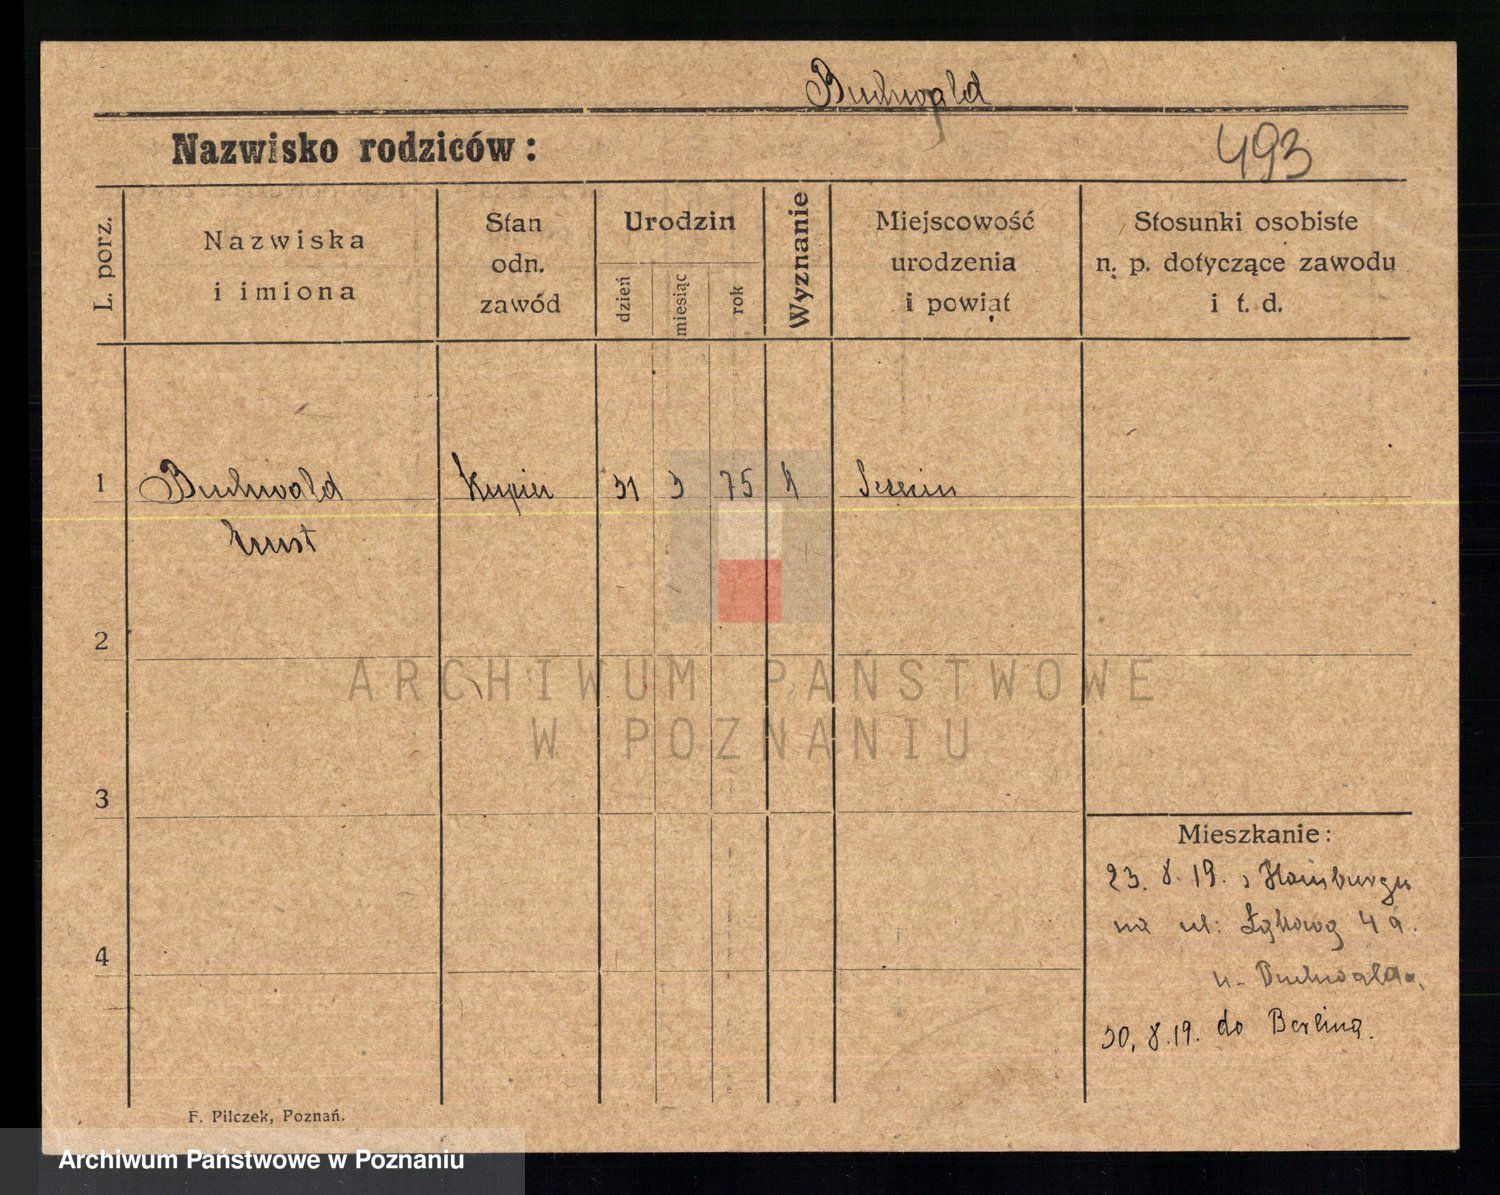 Buchwald
Nazwisko rodziców:
493
L. porz.
Nazwiska
i imiona
Stan
odn.
zawód
Urodzin
dzień
miesiąc
rok
Wyznanie
Miejscowość
urodzenia
i powiat
Stosunki osobiste
n. p. dotyczące zawodu
i t. d.
1
Buchwald
Ernst
Kupiec
31
3
75
2
3
4
Mieszkanie:
23. 8. 19. z Hamburgu
na ul: Łąkową 4a.
u. Buchwalda.
30. 8. 19. do Berlina.
F. Pilczek, Poznań.
ARCHIWUM PAŃSTWOWE
W POZNANIU
Archiwum Państwowe w Poznaniu